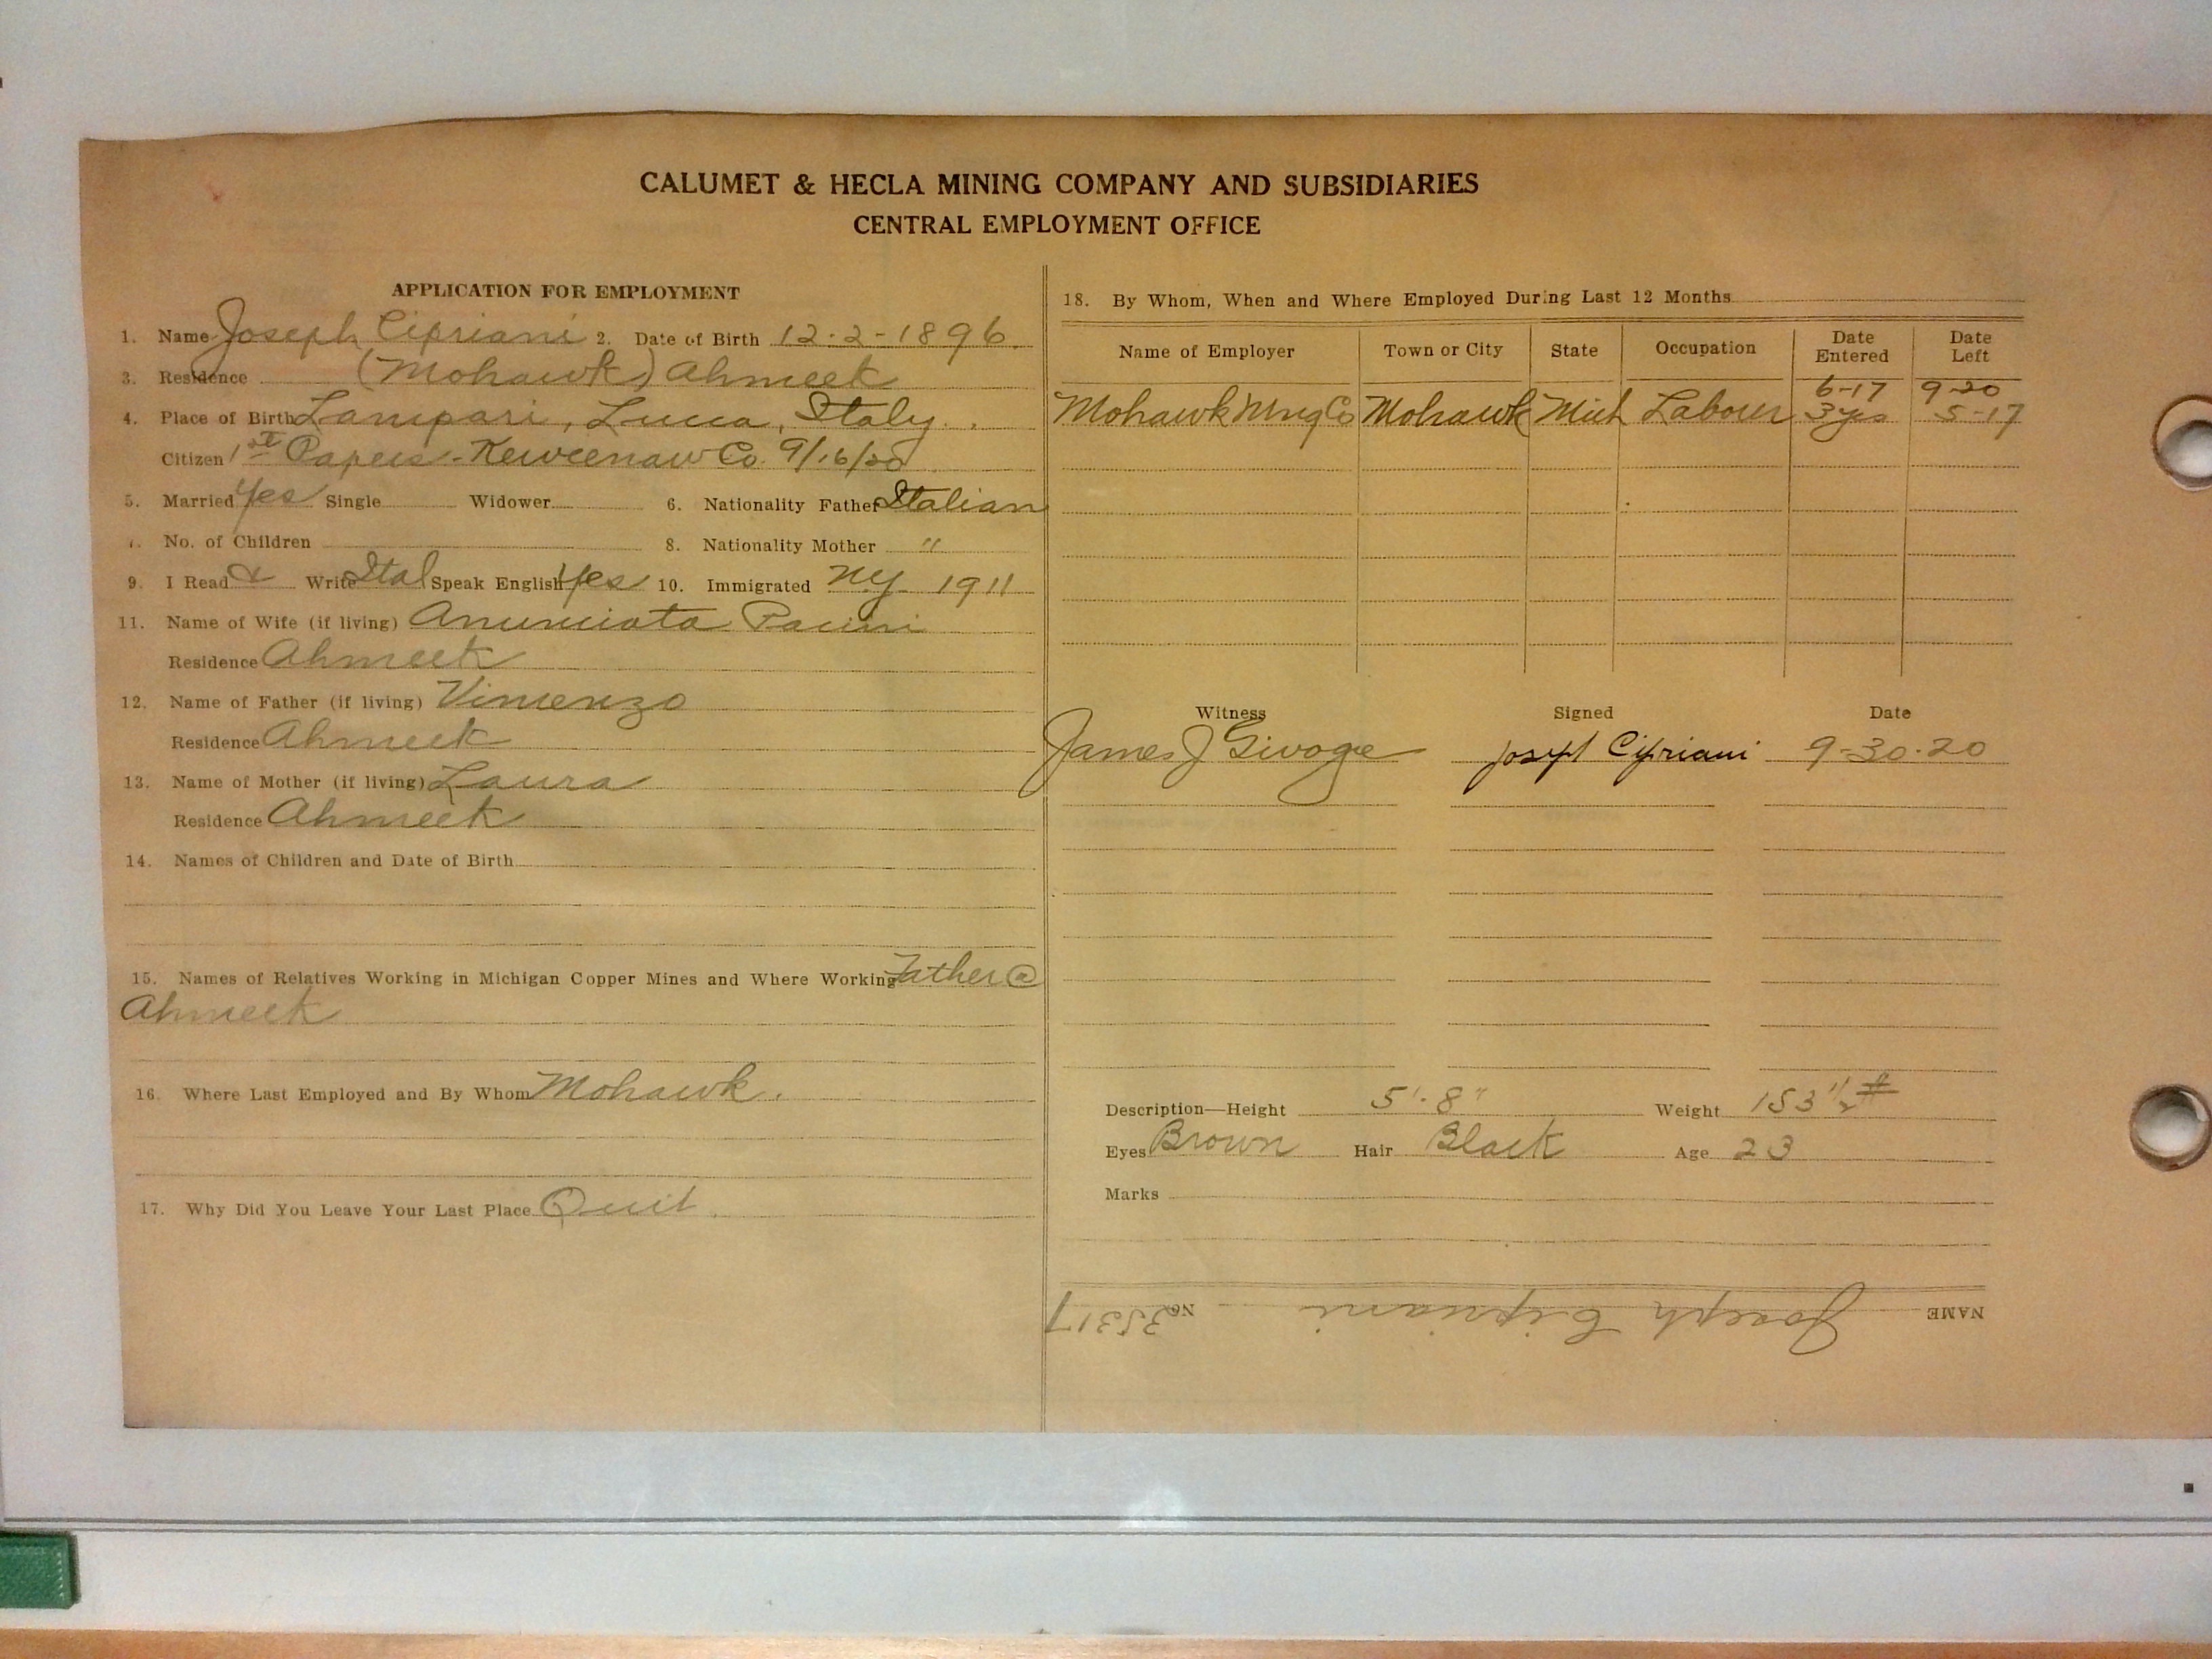 CALUMET & HECLA MINING COMPANY AND SUBSIDIARIES
CENTRAL EMPLOYMENT OFFICE
APPLICATION FOR EMPLOYMENT
1. Name Joseph Cipriani 2. Date of Birth 12-2-1896
3. Residence (Mohawk) Ahmeek
4. Place of Birth Lampari, Lucca, Italy.
Citizen 1st Papers - Keweenaw Co. 9/16/20
5. Married Yes Single Widower 6. Nationality Father Italian
7. No. of Children 8. Nationality Mother "
9. I Read & Write Ital Speak English Yes 10. Immigrated NY 1911
11. Name of Wife (if living) Anunciata Pacini
Residence Ahmeek
12. Name of Father (if living) Vincenzo
Residence Ahmeek
13. Name of Mother (if living) Laura
Residence Ahmeek
14. Names of Children and Date of Birth
15. Names of Relatives Working in Michigan Copper Mines and Where Working Father @
Ahmeek
16. Where Last Employed and By Whom Mohawk.
17. Why Did You Leave Your Last Place Quit.
18. By Whom, When and Where Employed During Last 12 Months
Name of Employer Town or City State Occupation Date Entered Date Left
6-17 9-20
Mohawk Mng Co Mohawk Mich Labour 3 yrs 5-17
Witness Signed Date
James J Joseph Cipriani 9-30-20
Description—Height 5'-8" Weight 153 1/2 #
Eyes Brown Hair Black Age 23
Marks
NAME Joseph Cipriani No. 35317